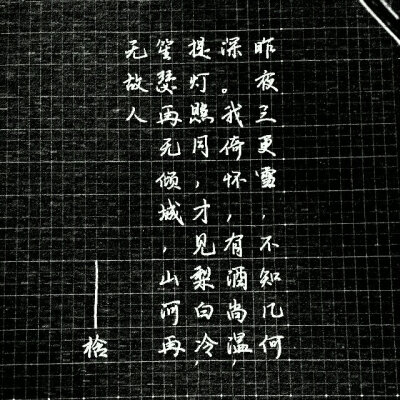 昨夜三更雪，不知几何
深。我倚怀，有酒尚温，
提灯照月，才见梨白冷，
笙瑟再无倾城，山河再
无故人
——